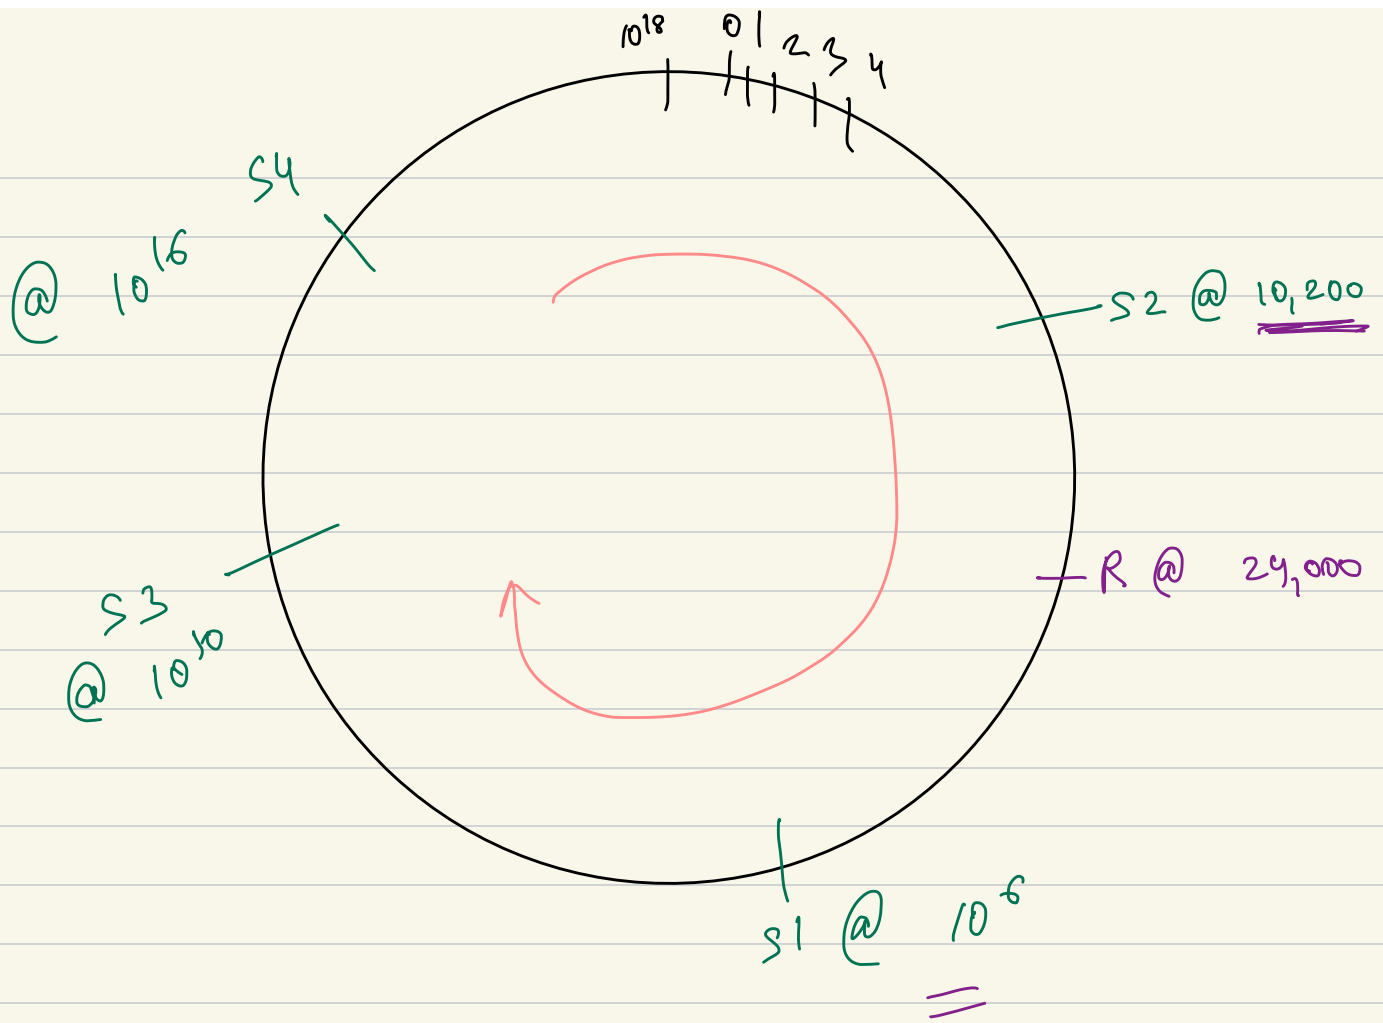 10¹⁸ 0 1 2 3 4
S4
@ 10¹⁶
S2 @ 10,200
R @ 24,000
S3
@ 10¹⁰
S1 @ 10⁶